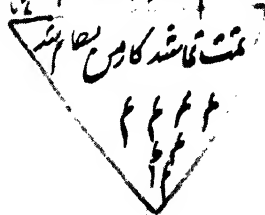 تمت تماشد کارمن نظام شد
م م م م
م م